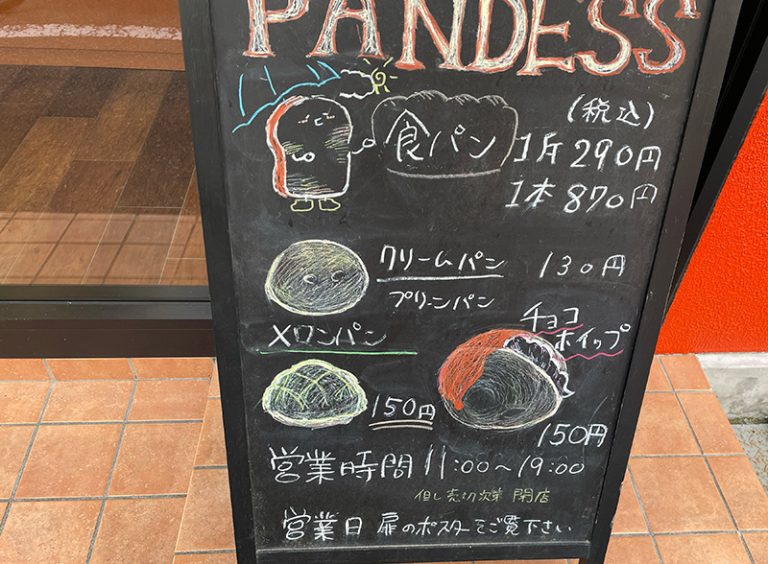 PANDESS
(税込)
食パン 1斤 290円
1本 870円
クリームパン 130円
プリンパン
メロンパン
150円
チョコ
ホイップ
150円
営業時間 11:00〜19:00
但し売切次第 閉店
営業日 扉のポスターをご覧下さい